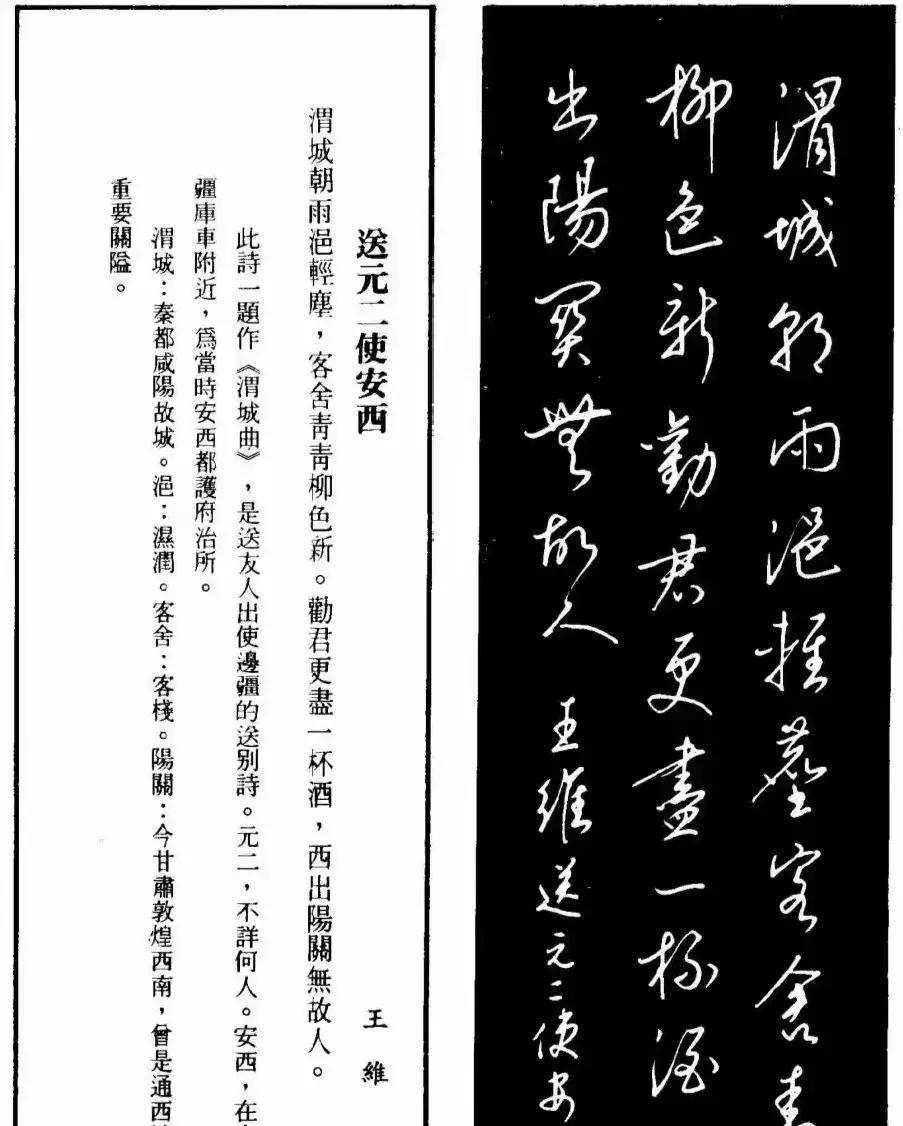 渭城朝雨浥輕塵客舍青
柳色新勸君更盡一杯酒
出陽關無故人 王維送元二使安
送元二使安西 王維
渭城朝雨浥輕塵，客舍靑靑柳色新。勸君更盡一杯酒，西出陽關無故人。
此詩一題作《渭城曲》，是送友人出使邊疆的送別詩。元二，不詳何人。安西，在
疆庫車附近，爲當時安西都護府治所。
渭城：秦都咸陽故城。浥：濕潤。客舍：客棧。陽關：今甘肅敦煌西南，曾是通西
重要關隘。